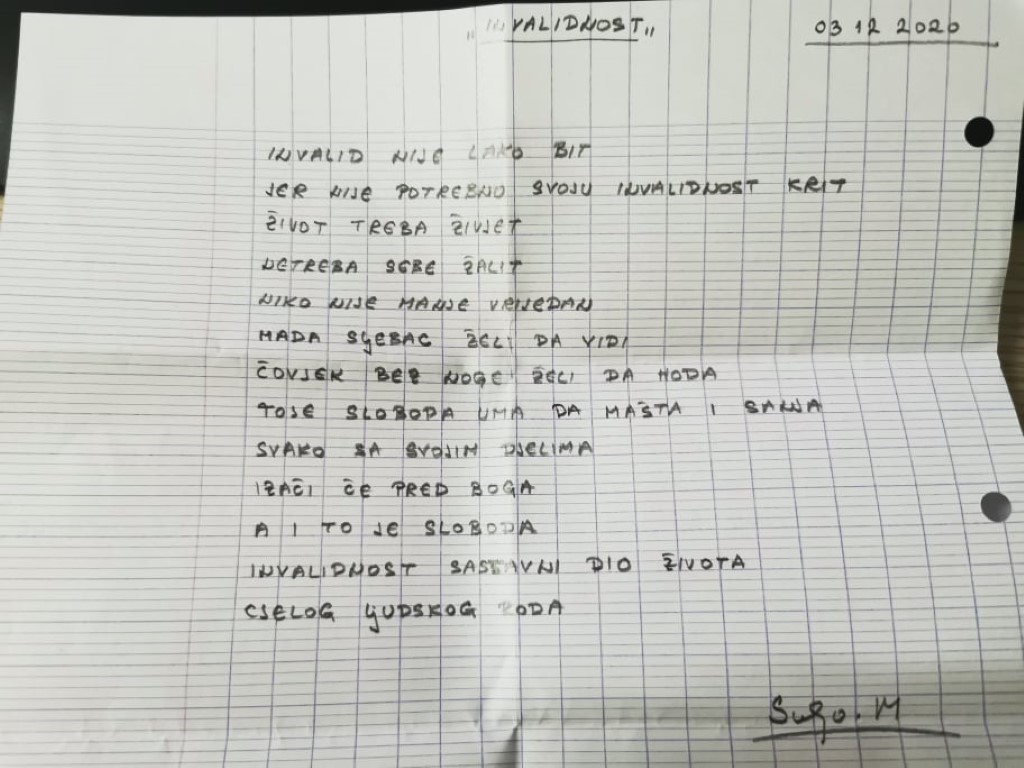 „INVALIDNOST„
03 12 2020
INVALID NIJE LAKO BIT
JER NIJE POTREBNO SVOJU INVALIDNOST KRIT
ŽIVOT TREBA ŽIVJET
NETREBA SEBE ŽALIT
NIKO NIJE MANJE VRIJEDAN
MADA SLJEBAC ŽELI DA VIDI
ČOVJEK BEZ NOGE ŽELI DA HODA
TOJE SLOBODA UMA DA MAŠTA I SANJA
SVAKO SA SVOJIM DJELIMA
IZAČI ČE PRED BOGA
A I TO JE SLOBODA
INVALIDNOST SASTAVNI DIO ŽIVOTA
CJELOG LJUDSKOG RODA